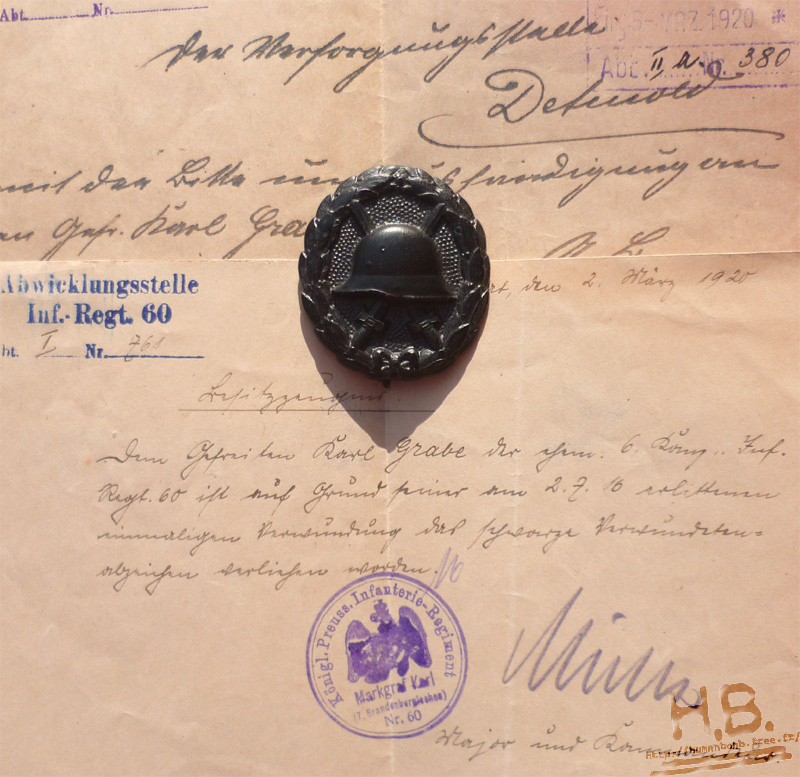 Abt. Nr.
Der Versorgungsstelle
MRZ. 1920
Abt. II a. Nr. 380
Detmold
mit der Bitte um Aushändigung an
Gefr. Karl Grabe
Abwicklungsstelle
Inf.-Regt. 60
bt. I Nr. 761
den 2. März 1920
Besitzzeugnis.
Dem Gefreiten Karl Grabe der ehem. 6. Komp. Inf.
Regt. 60 ist auf Grund seiner am 2.7.16 erlittenen
einmaligen Verwundung das schwarze Verwundeten=
abzeichen verliehen worden.
Königl. Preuss. Infanterie-Regiment
Markgraf Karl
(7. Brandenburgisches)
Nr. 60
Major und
H.B.
http://humanbonb.free.fr/